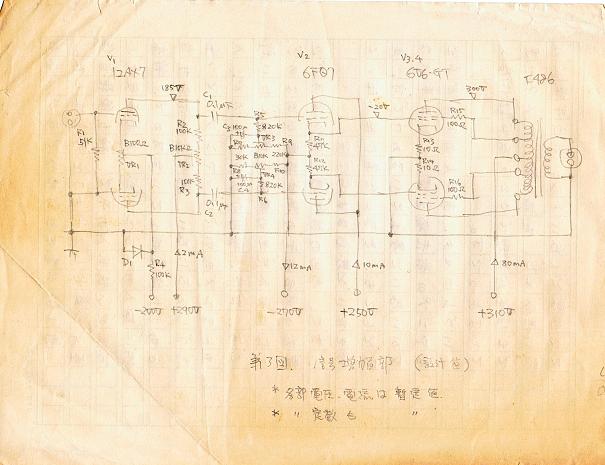 V1
12AX7
V2
6FQ7
V3.4
6V6-GT
185V
C1
0.1μF
-20V
300V
R15
100Ω
R1
51K
R2
100K
B100Ω
VR1
B10KΩ
VR2
100K
R3
0.1μF
C2
C3 100P
820K
VR3
R9
30K
B10K
220K
VR4
R10
100P
C4
820K
R6
R11
47K
R12
47K
R13
10Ω
R14
10Ω
R16
100Ω
D1
R4
100K
2mA
12mA
10mA
80mA
-200V
+290V
-270V
+250V
+310V
第3図. 信号増幅部 (設計値)
* 各部電圧、電流は暫定値.
* 〃 定数も 〃